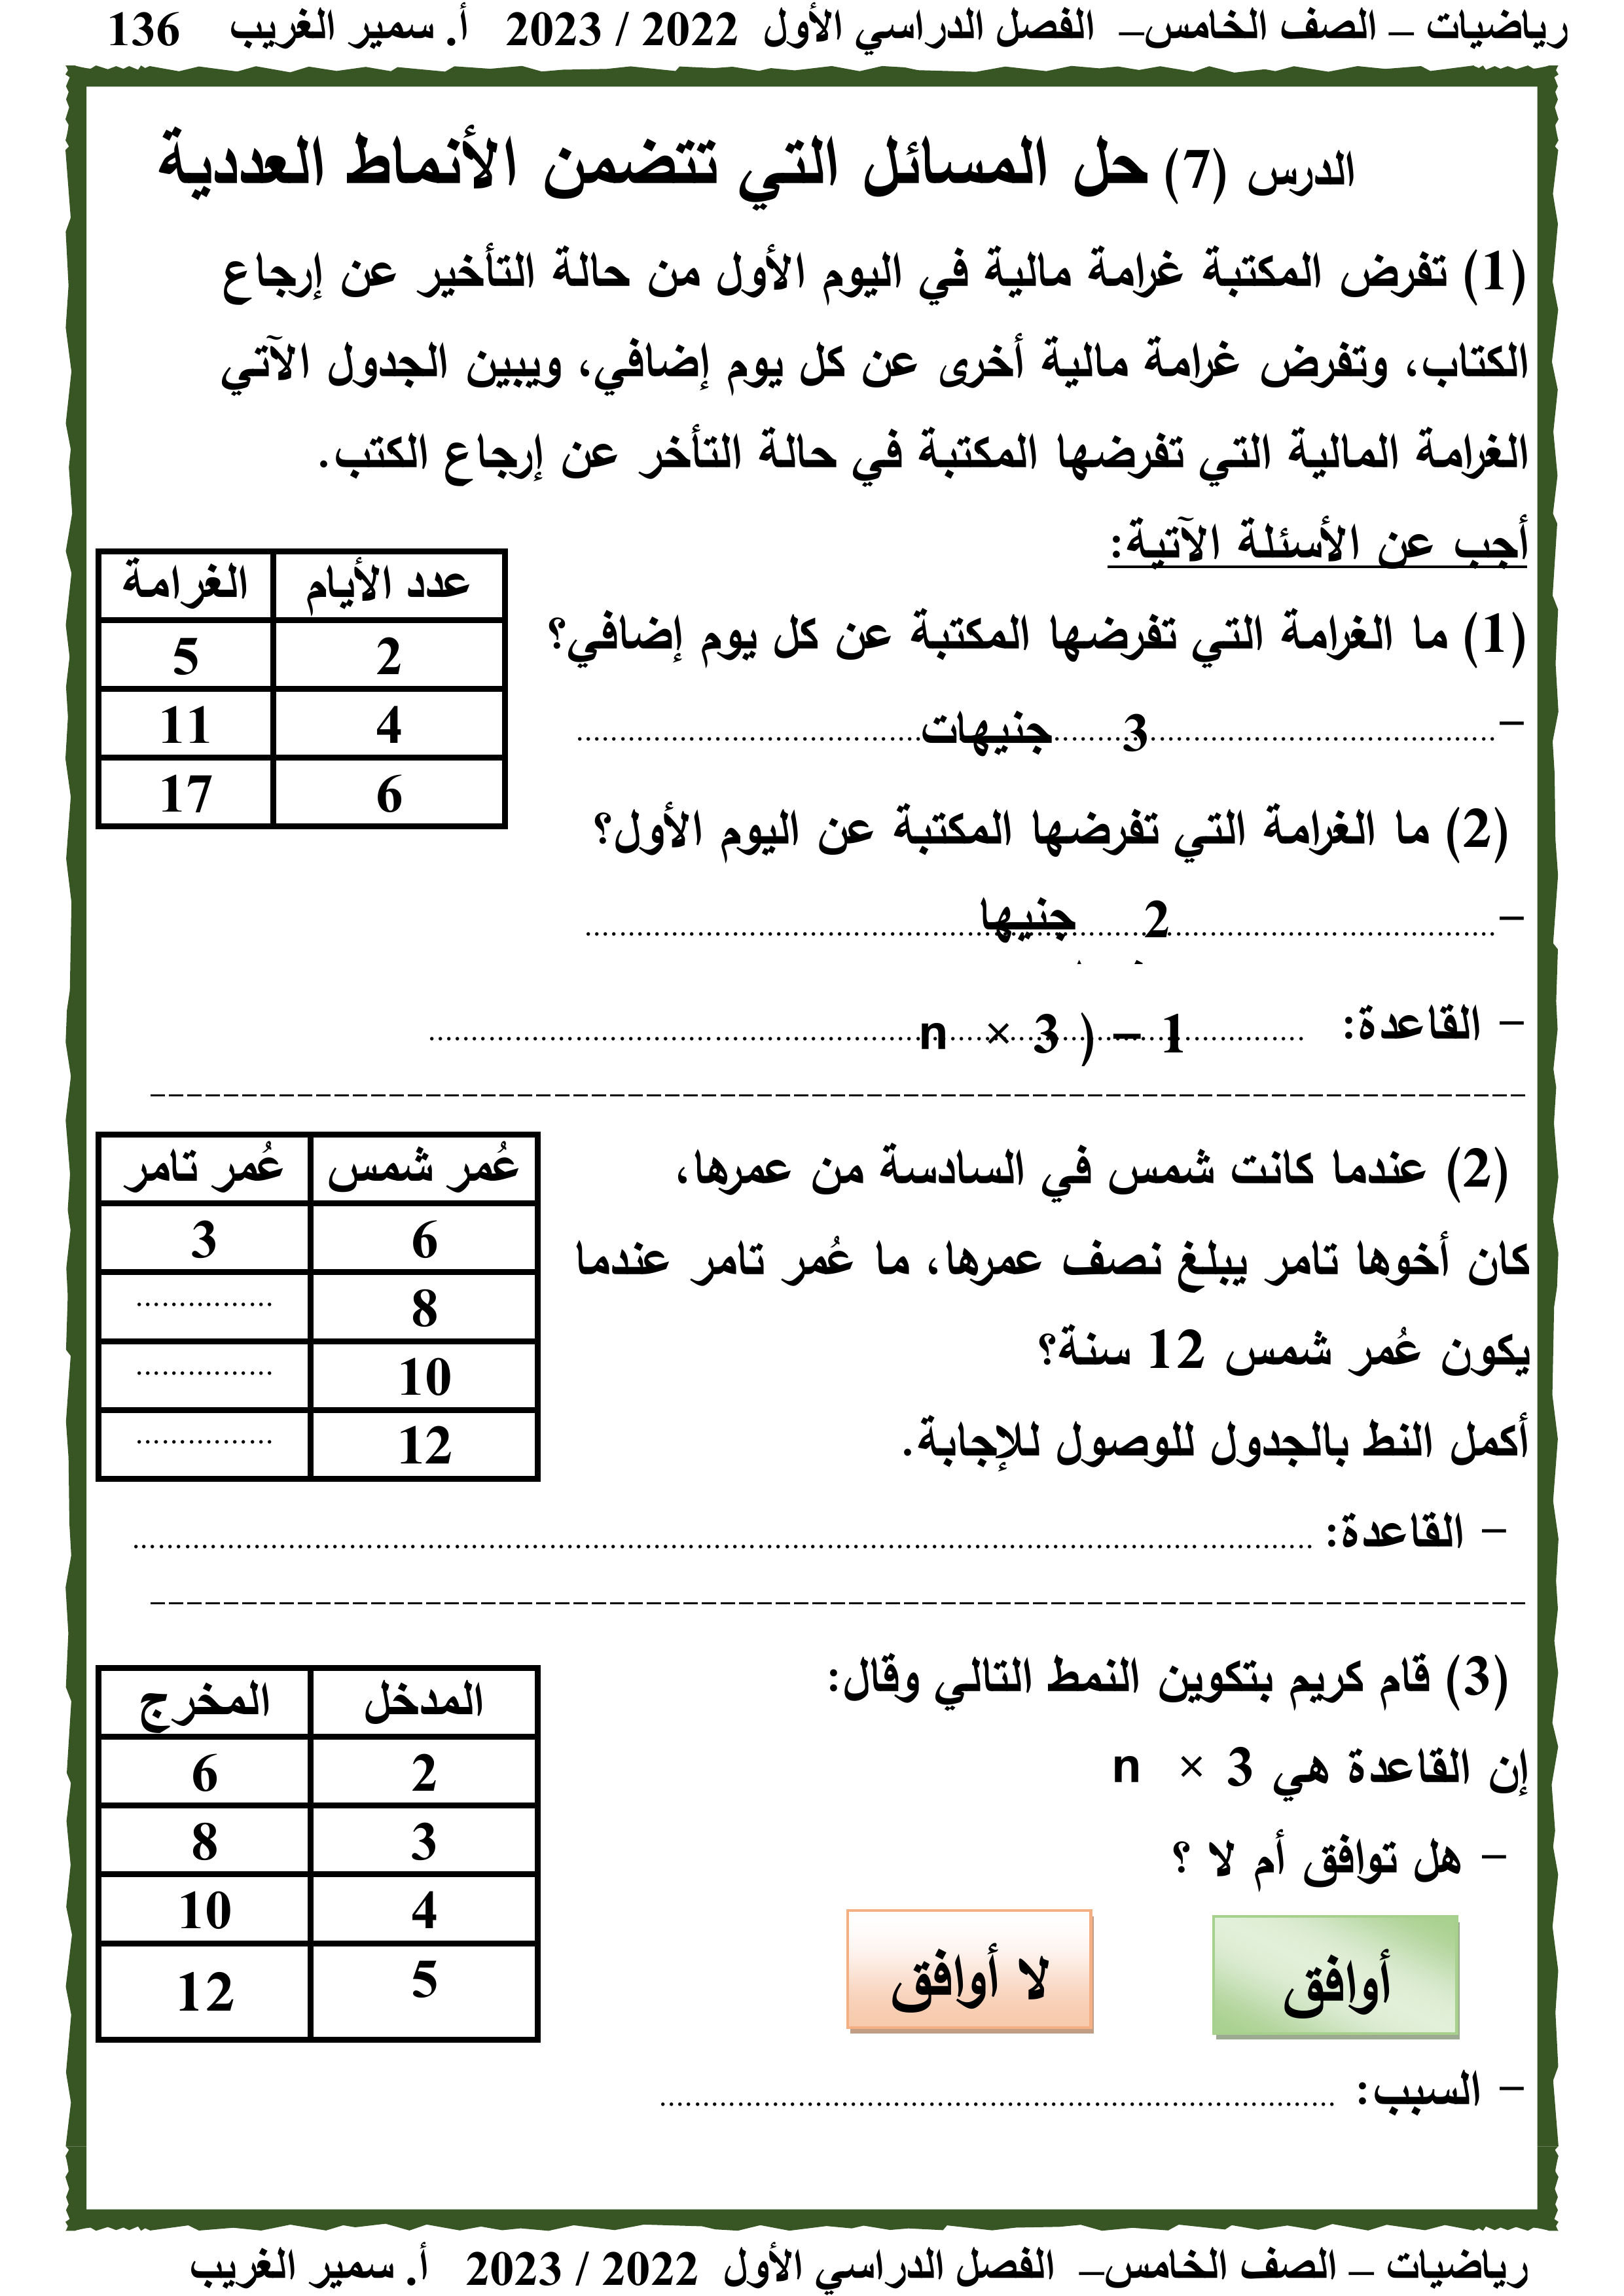 رياضيات – الصف الخامس– الفصل الدراسي الأول 2022 / 2023 أ. سمير الغريب 136
الدرس (7) حل المسائل التي تتضمن الأنماط العددية
(1) تفرض المكتبة غرامة مالية في اليوم الأول من حالة التأخير عن إرجاع
الكتاب، وتفرض غرامة مالية أخرى عن كل يوم إضافي، ويبين الجدول الآتي
الغرامة المالية التي تفرضها المكتبة في حالة التأخر عن إرجاع الكتب.
أجب عن الأسئلة الآتية:
عدد الأيام الغرامة
2 5
4 11
6 17
(1) ما الغرامة التي تفرضها المكتبة عن كل يوم إضافي؟
– 3 جنيهات
(2) ما الغرامة التي تفرضها المكتبة عن اليوم الأول؟
– 2 جنيها
– القاعدة: 1 – ( 3 × n
(2) عندما كانت شمس في السادسة من عمرها،
كان أخوها تامر يبلغ نصف عمرها، ما عُمر تامر عندما
يكون عُمر شمس 12 سنة؟
أكمل النط بالجدول للوصول للإجابة.
عُمر شمس عُمر تامر
6 3
8 ................
10 ................
12 ................
– القاعدة: ................
(3) قام كريم بتكوين النمط التالي وقال:
إن القاعدة هي 3 × n
– هل توافق أم لا ؟
أوافق لا أوافق
المدخل المخرج
2 6
3 8
4 10
5 12
– السبب: ................
رياضيات – الصف الخامس– الفصل الدراسي الأول 2022 / 2023 أ. سمير الغريب